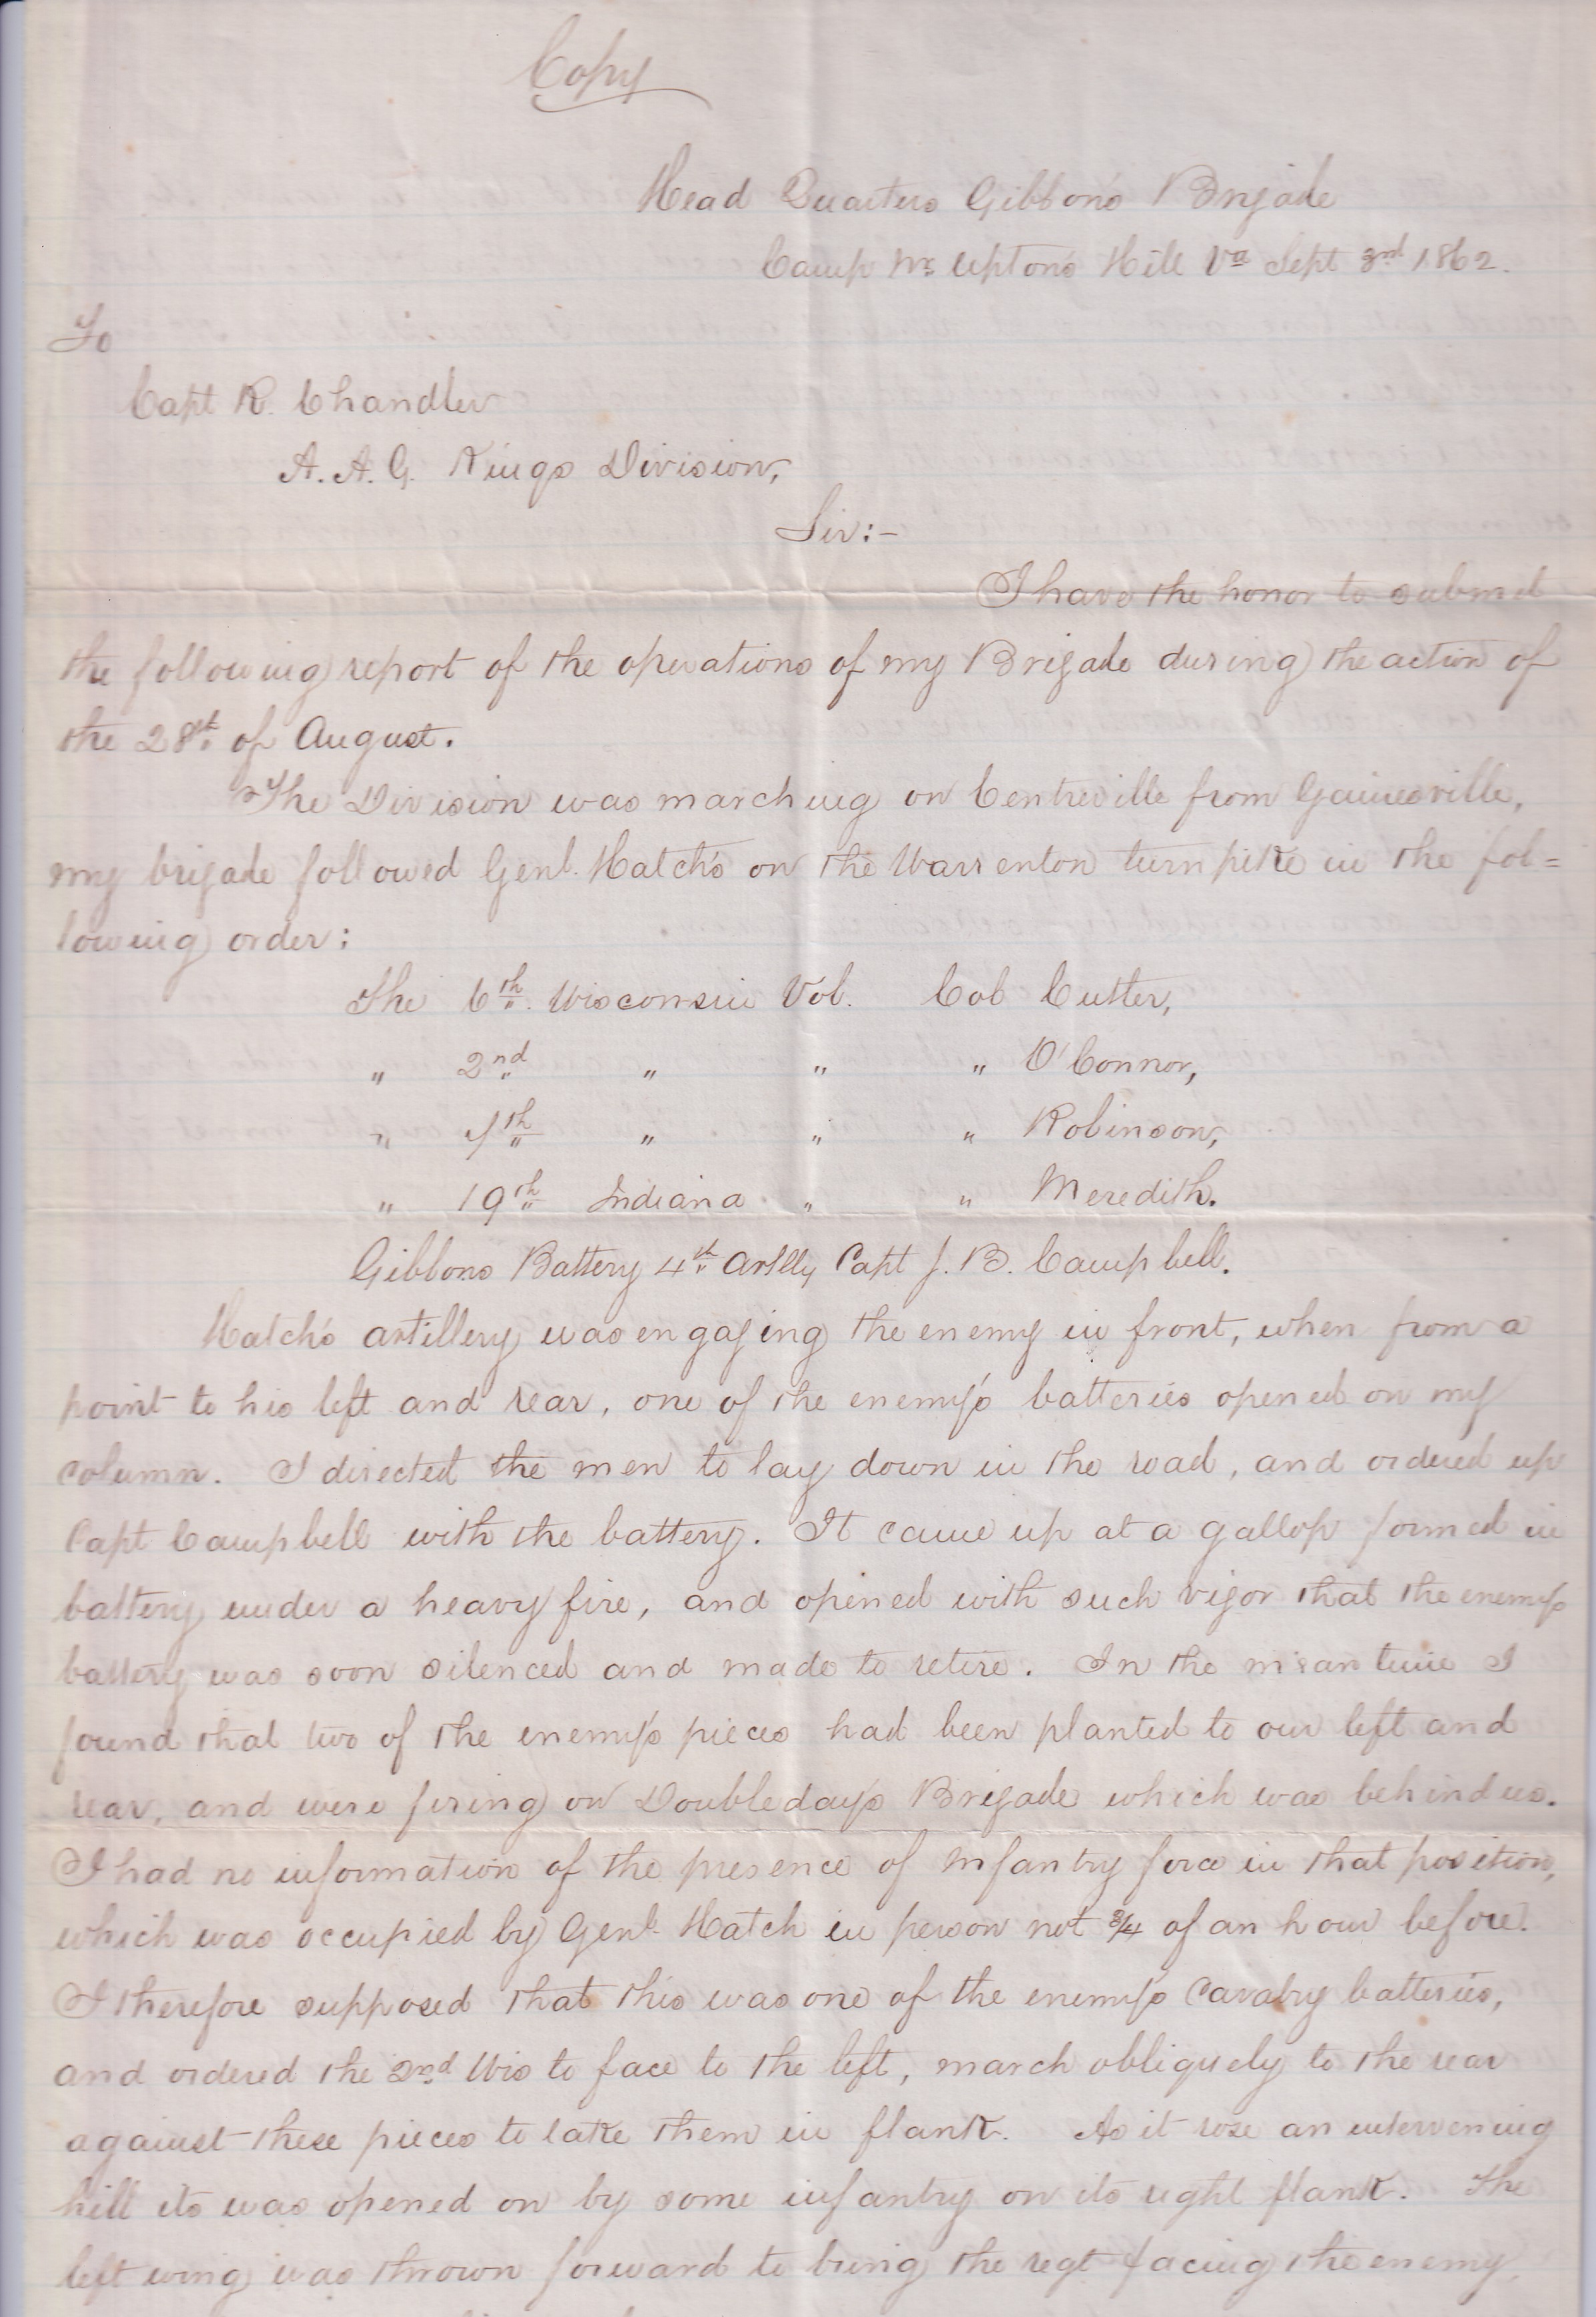 Copy
Head Quarters Gibbon's Brigade
Camp Nr. Upton's Hill Va Sept 3rd 1862.
To
Capt R. Chandler
A. A. G. Kings Division,
Sir:-
I have the honor to submit
the following report of the operations of my Brigade during the action of
the 28th of August.
The Division was marching on Centreville from Gainesville,
my brigade followed Genl. Hatch's on the Warrenton turnpike in the fol=
lowing order:
The 6th Wisconsin Vol. Col Cutler,
" 2nd " " " O'Connor,
" 7th " " " Robinson,
" 19th Indiana " " Meredith.
Gibbons Battery 4th Artlly Capt J. B. Campbell.
Hatch's artillery was engaging the enemy in front, when from a
point to his left and rear, one of the enemy's batteries opened on my
column. I directed the men to lay down in the road, and ordered up
Capt Campbell with the battery. It came up at a gallop formed in
battery under a heavy fire, and opened with such vigor that the enemy's
battery was soon silenced and made to retire. In the mean time I
found that two of the enemy's pieces had been planted to our left and
rear, and were firing on Doubleday's Brigade which was behind us.
I had no information of the presence of Infantry force in that position,
which was occupied by Genl. Hatch in person not 3/4 of an hour before.
I therefore supposed that this was one of the enemy's Cavalry batteries,
and ordered the 2nd Wis to face to the left, march obliquely to the rear
against these pieces to take them in flank. As it rose an intervening
hill its was opened on by some infantry on its right flank. The
left wing was thrown forward to bring the regt facing the enemy